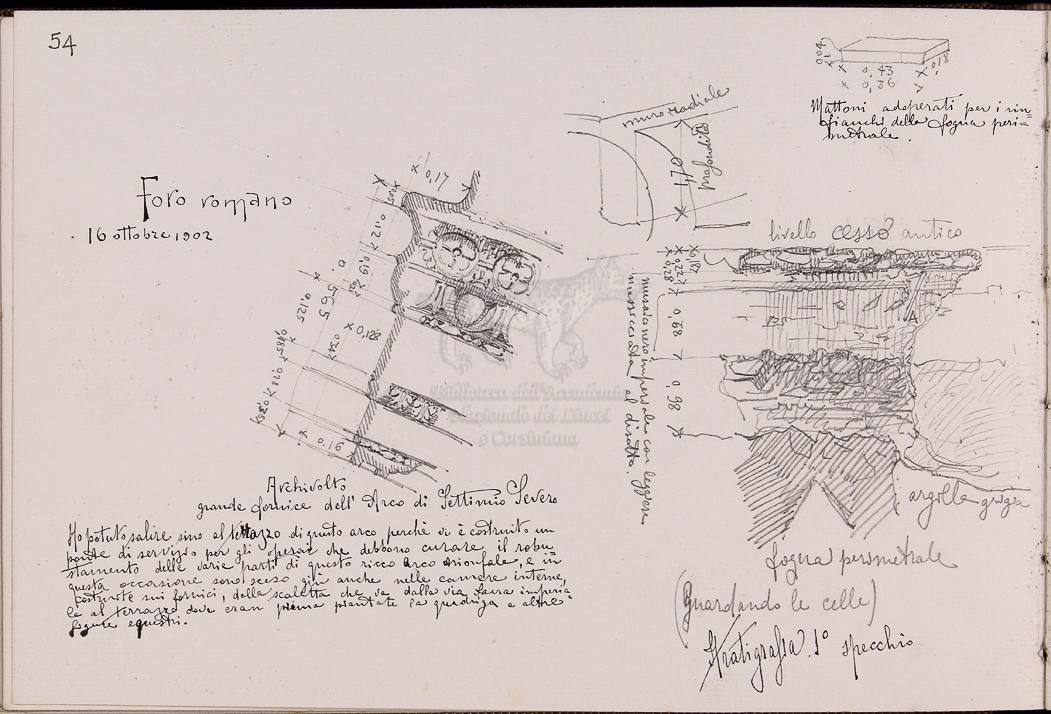 54
Foro romano
16 ottobre 1902
0,17
0,128
0,125
565
0,16
Archivolto
grande fornice dell'Arco di Settimio Severo
Ho potuto salire sino al terrazzo di questo arco perchè vi è costruito un
ponte di servizio per gli operai che debbono curare il robu=
stamento delle varie parti di questo ricco arco trionfale, e in
questa occasione sono sceso giù anche nelle camere interne,
costruite sui fornici, della scaletta che va dalla via sacra imperia
le al terrazzo dove eran prima piantate la quadriga e altre
figure equestri.
0,43
0,36
0,18
Mattoni adoperati per i rin=
fianchi della fogna peri=
metrale.
muro radiale
1,70
profondità
livello cesso antico
0,68
0,98
A
murato nero imperiale con leggere
massicciata al disotto.
argilla grigia
fogna perimetrale
(Guardando le celle)
Stratigrafia. 1° specchio
Biblioteca dell'Accademia
Nazionale dei Lincei
e Corsiniana